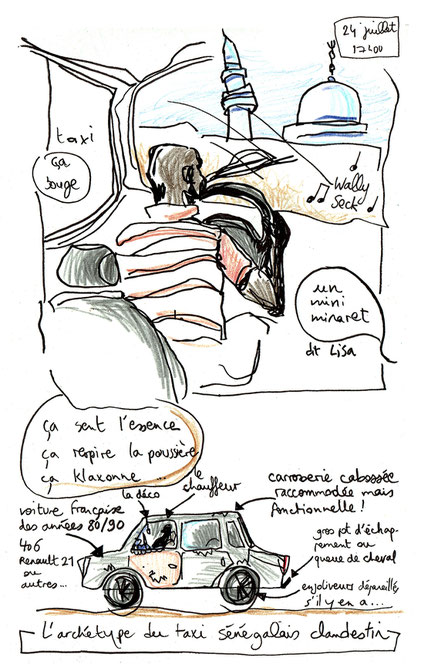 24 juillet
17h00
taxi
ça
bouge
Wally
Seck
un
mini
minaret
dt Lisa
ça sent l'essence
ça respire la poussière
ça klaxonne ...
voiture française
des années 80/90
406
Renault 21
ou
autres...
la déco
le
chauffeur
carrosserie cabossée
raccommodée mais
fonctionnelle !
gros pot d'échap-
pement ou
queue de cheval
enjoliveurs dépareillés
s'il y en a...
L'archétype du taxi sénégalais clandestin